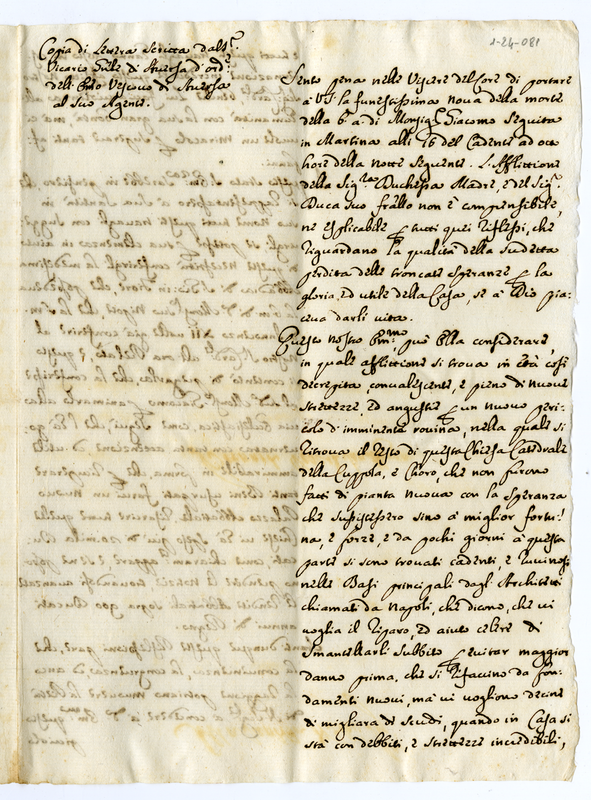 1-24-081
Copia di Lettera scritta dal Sr.
Vicario Gnle di Aversa d'ordne
dell'Emo Vescovo di Aversa
al suo Agente.
Sento pena nelle Viscere del Core di portare
à VS. la funestissima nova della morte
della b. a. di Monsigr. Giacomo seguita
in Martina alli 16 del Cadente ad otto
hore della notte seguente. L'Afflittione
della Sigra. Duchessa Madre, e del Sigr.
Duca suo fratello non è comprensibile,
ne esplicabile per tutti quei riflessi, che
riguardano la qualità della sudetta
perdita delle troncate speranze per la
gloria, ed utile della Casa, se à Dio pia-
ceva darli vita.
Questo nostro Emmo. può Ella considerare,
in quale afflittione si trova in età così
decrepita, convalescente, e pieno di nuove
strettezze, ed angustie per un nuovo peri-
colo d'imminente rovina, nella quale si
ritrova il resto di questa Chiesa Cattedrale
della Cuppola, e Choro, che non furono
fatti di pianta nuova con la speranza
che sussistessero sino à miglior fortu-
na, e forze, e da pochi giorni à questa
parte si sono trovati cadenti, e ruinosi
nelle Basi principali dagl'Architetti
chiamati da Napoli, che dicono, che vi
voglia il riparo, ed aiuto celere di
smantellarli subbito per evitar maggior
danno prima, che si rifaccino da fon-
damenti nuovi, mà vi vogliono decine
di migliara di scudi, quando in Casa si
stà con debbiti, e strettezze incredibili,